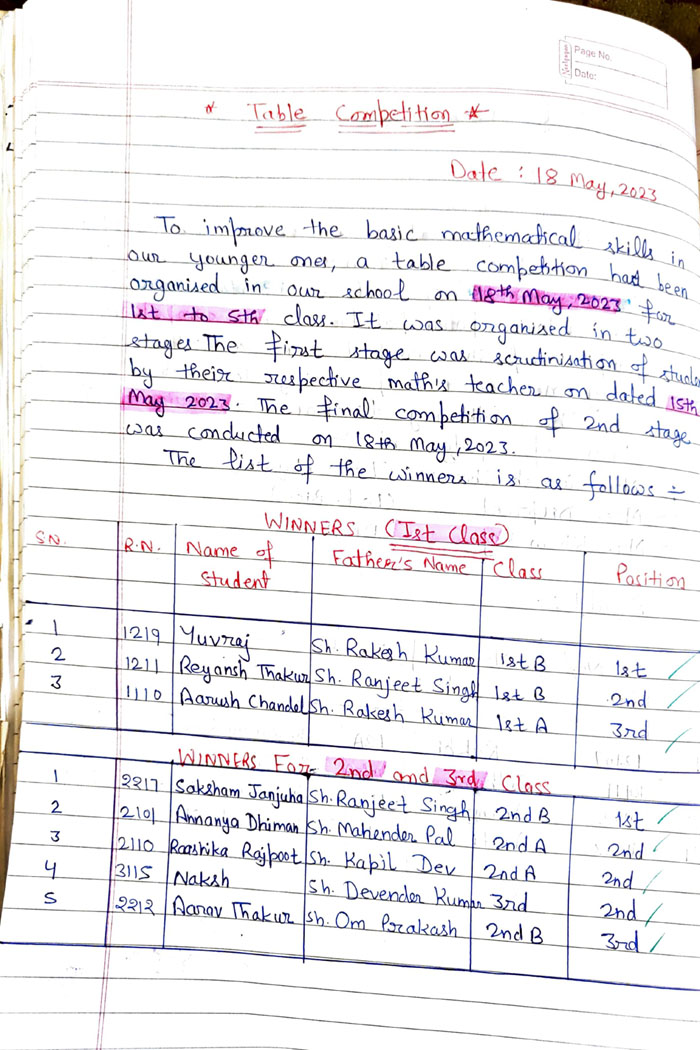 Page No.
Date:
* Table Competition *
Date : 18 May, 2023
To improve the basic mathematical skills in
our younger ones, a table competition had been
organised in our school on 18th May, 2023 for
1st to 5th class. It was organised in two
stages The first stage was scrutinisation of stude
by their respective math's teacher on dated 15th
May 2023. The final competition of 2nd stage
was conducted on 18th May, 2023.
The list of the winners is as follows ÷
WINNERS (Ist Class)
SN. R.N. Name of Student Father's Name Class Position
1 1219 Yuvraj Sh. Rakesh Kumar 1st B 1st
2 1211 Reyansh Thakur Sh. Ranjeet Singh 1st B 2nd
3 1110 Aarush Chandel Sh. Rakesh Kumar 1st A 3rd
WINNERS For 2nd and 3rd Class
1 2217 Saksham Janjuha Sh. Ranjeet Singh 2nd B 1st
2 2101 Annanya Dhiman Sh. Mahender Pal 2nd A 2nd
3 2110 Raashika Rajpoot Sh. Kapil Dev 2nd A 2nd
4 3115 Naksh Sh. Devender Kumar 3rd 2nd
5 2212 Aarav Thakur Sh. Om Prakash 2nd B 3rd